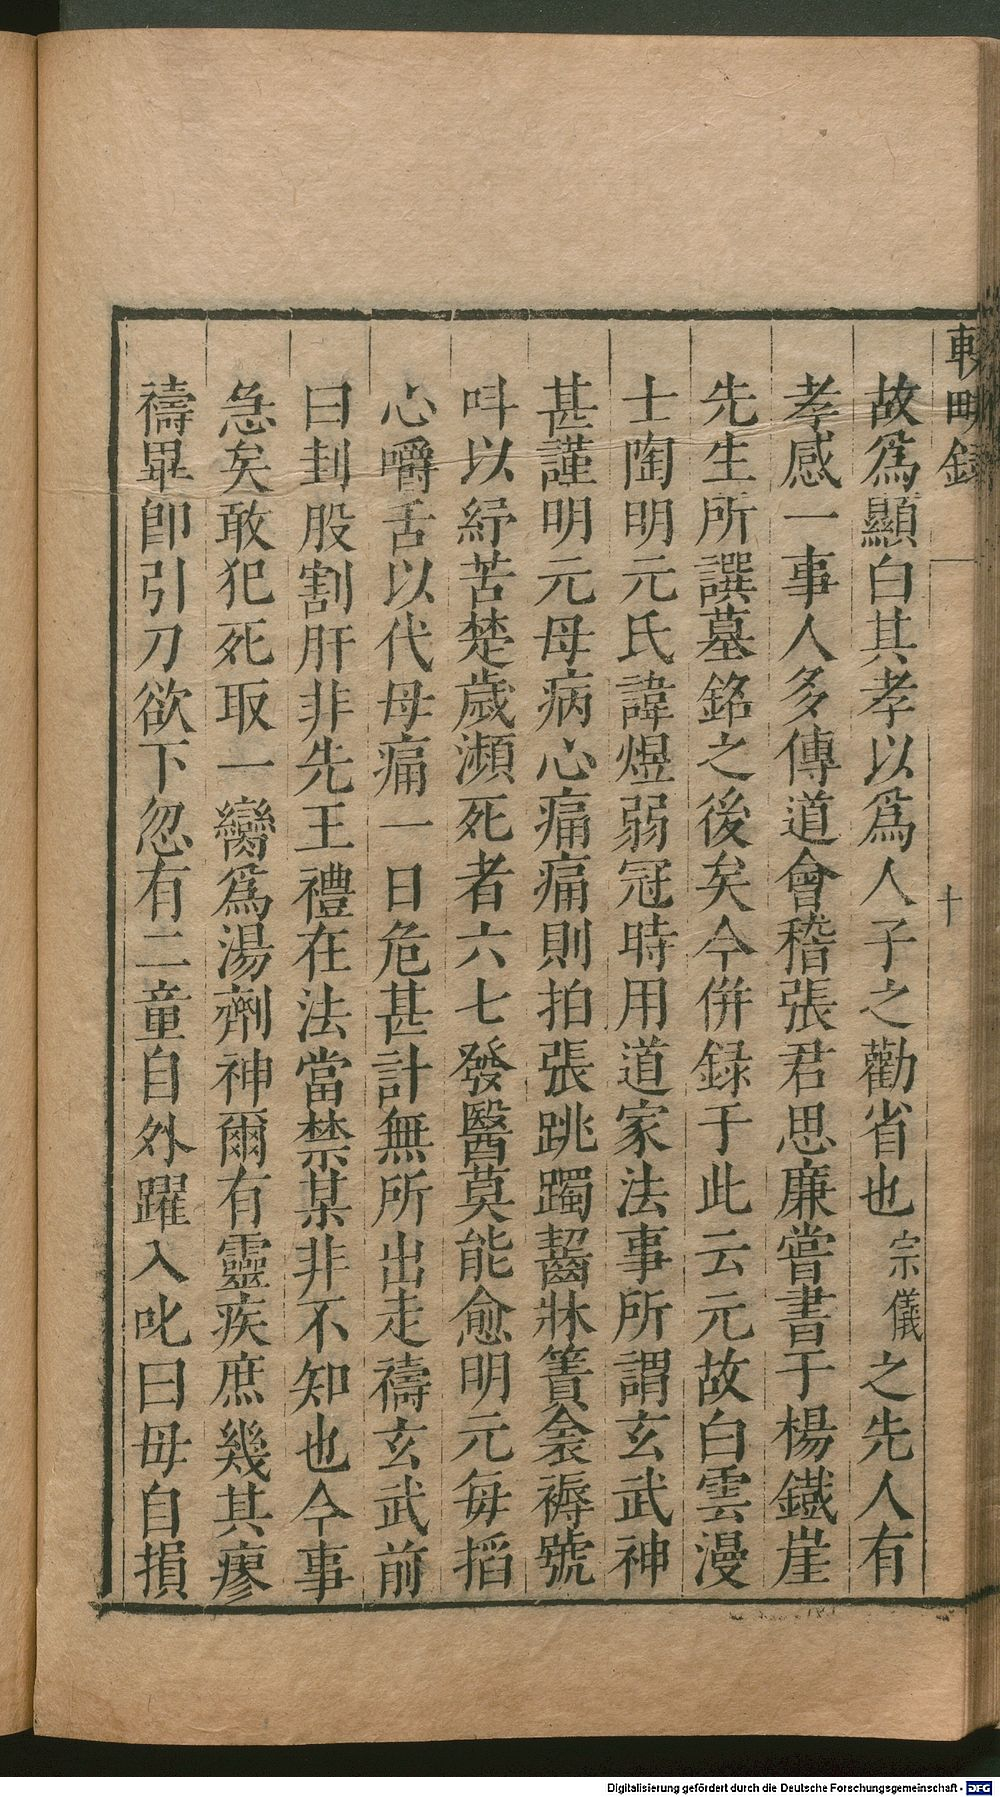 輟畊錄
十
故爲顯白其孝以爲人子之勸省也宗儀之先人有
孝感一事人多傳道會稽張君思廉嘗書于楊鐵崖
先生所譔墓銘之後矣今併録于此云元故白雲漫
士陶明元氏諱煜弱冠時用道家法事所謂玄武神
甚謹明元母病心痛痛則拍張跳躅齧牀簀衾褥號
呌以紓苦楚歲瀕死者六七發醫莫能愈明元每搯
心嚼舌以代母痛一日危甚計無所出走禱玄武前
曰刲股割肝非先王禮在法當禁某非不知也今事
急矣敢犯死取一臠爲湯劑神爾有靈疾庶幾其瘳
禱畢即引刀欲下忽有二童自外躍入叱曰毋自損
Digitalisierung gefördert durch die Deutsche Forschungsgemeinschaft - DFG